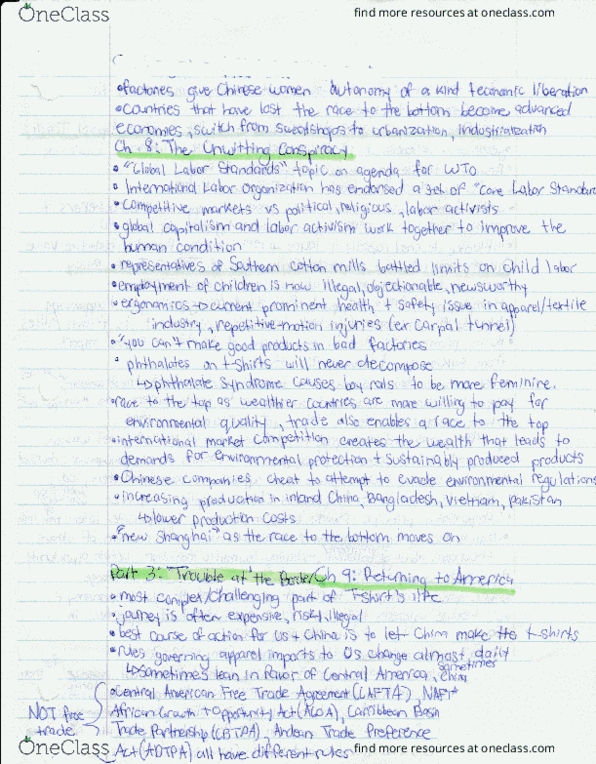 OneClass
find more resources at oneclass.com
•factories give Chinese women autonomy of a kind + economic liberation
•Countries that have lost the race to the bottom become advanced
economies, switch from sweatshops to urbanization, industrialization
Ch 8: The Unwitting Conspiracy
•"Global Labor Standards" topic on agenda for WTO
•International Labor Organization has endorsed a set of "Core Labor Standards
•competitive markets vs political, religious, labor activists
•global capitalism and labor activism work together to improve the
human condition
•representatives of Southern cotton mills battled limits on child labor
•employment of children is now illegal, objectionable, newsworthy
•ergonomics → current prominent health + safety issue in apparel/textile
industry, repetitive-motion injuries (ex carpal tunnel)
•"you can't make good products in bad factories
•phthalates on t-shirts will never decompose
↳phthalate syndrome causes boy rats to be more feminine.
•race to the top as wealthier countries are more willing to pay for
environmental quality, trade also enables a race to the top
•international market competition creates the wealth that leads to
demands for environmental protection + sustainably produced products
•Chinese companies cheat to attempt to evade environmental regulations
•increasing production in inland China, Bangladesh, Vietnam, Pakistan
↳lower production costs
•"new Shanghai" as the race to the bottom moves on
Part 3: Trouble at the Border Ch 9: Returning to America
•most complex/challenging part of T-shirt's life
•journey is often expensive, risky, illegal
•best course of action for US + China is to let China make the t-shirts
•rules governing apparel imports to US change almost daily
↳sometimes lean in favor of Central America, sometimes China
•Central American Free Trade Agreement (CAFTA), NAFTA
NOT free trade
African Growth + Opportunity Act (AGOA), Carribean Basin
Trade Partnership (CBTPA), Andean Trade Preference
Act (ADTPA) all have different rules
OneClass
find more resources at oneclass.com